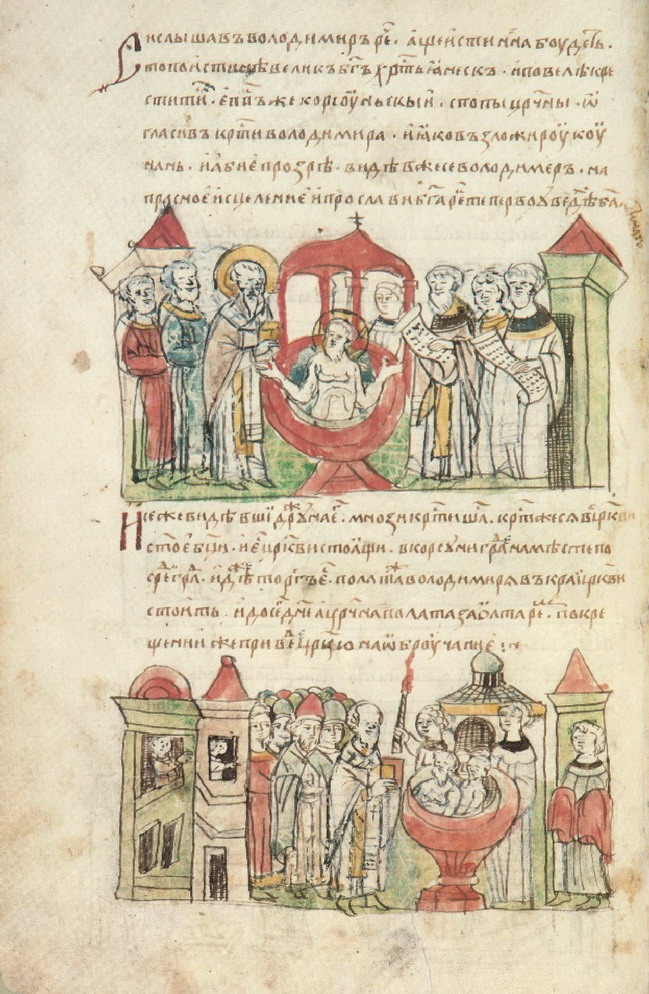 И слышавъ володимиръ рє҃ · аще истинна боудєть ·
то поистинѣ великъ бг҃ъ хр҃тьянескъ · и повелѣ кре
ститиⷭ҇ · еп҃пъ же корсоуньскыи · с попы црч҃ны · ѡ
гласивъ кр҃ти володимира · и яковъзложи роукоу
нань · и абие прозрѣ · видѣвжесе володимеръ · на
прасное исцеление и прослави бг҃а ре҃ те первоувєдѣ ба҃
И сежевидѣвши дружⷩ҇а е҃г · мнозикр҃тишⷭ҇ѧ · кр҃тжеся вцр҃кви
стое бц҃и · и е҃ цр҃кви стоѧщи · в корсуни гра҃ на мѣсте по
среⷣ гра҃ · идѣⷤ торгъ е҃ · полатаⷤ володимиря въ краи цр҃кви
стоить · и досє днє а црч҃на палата за ѡлтареⷨ · по кре
щении же приведе црц҃ю на ѡброучание :~